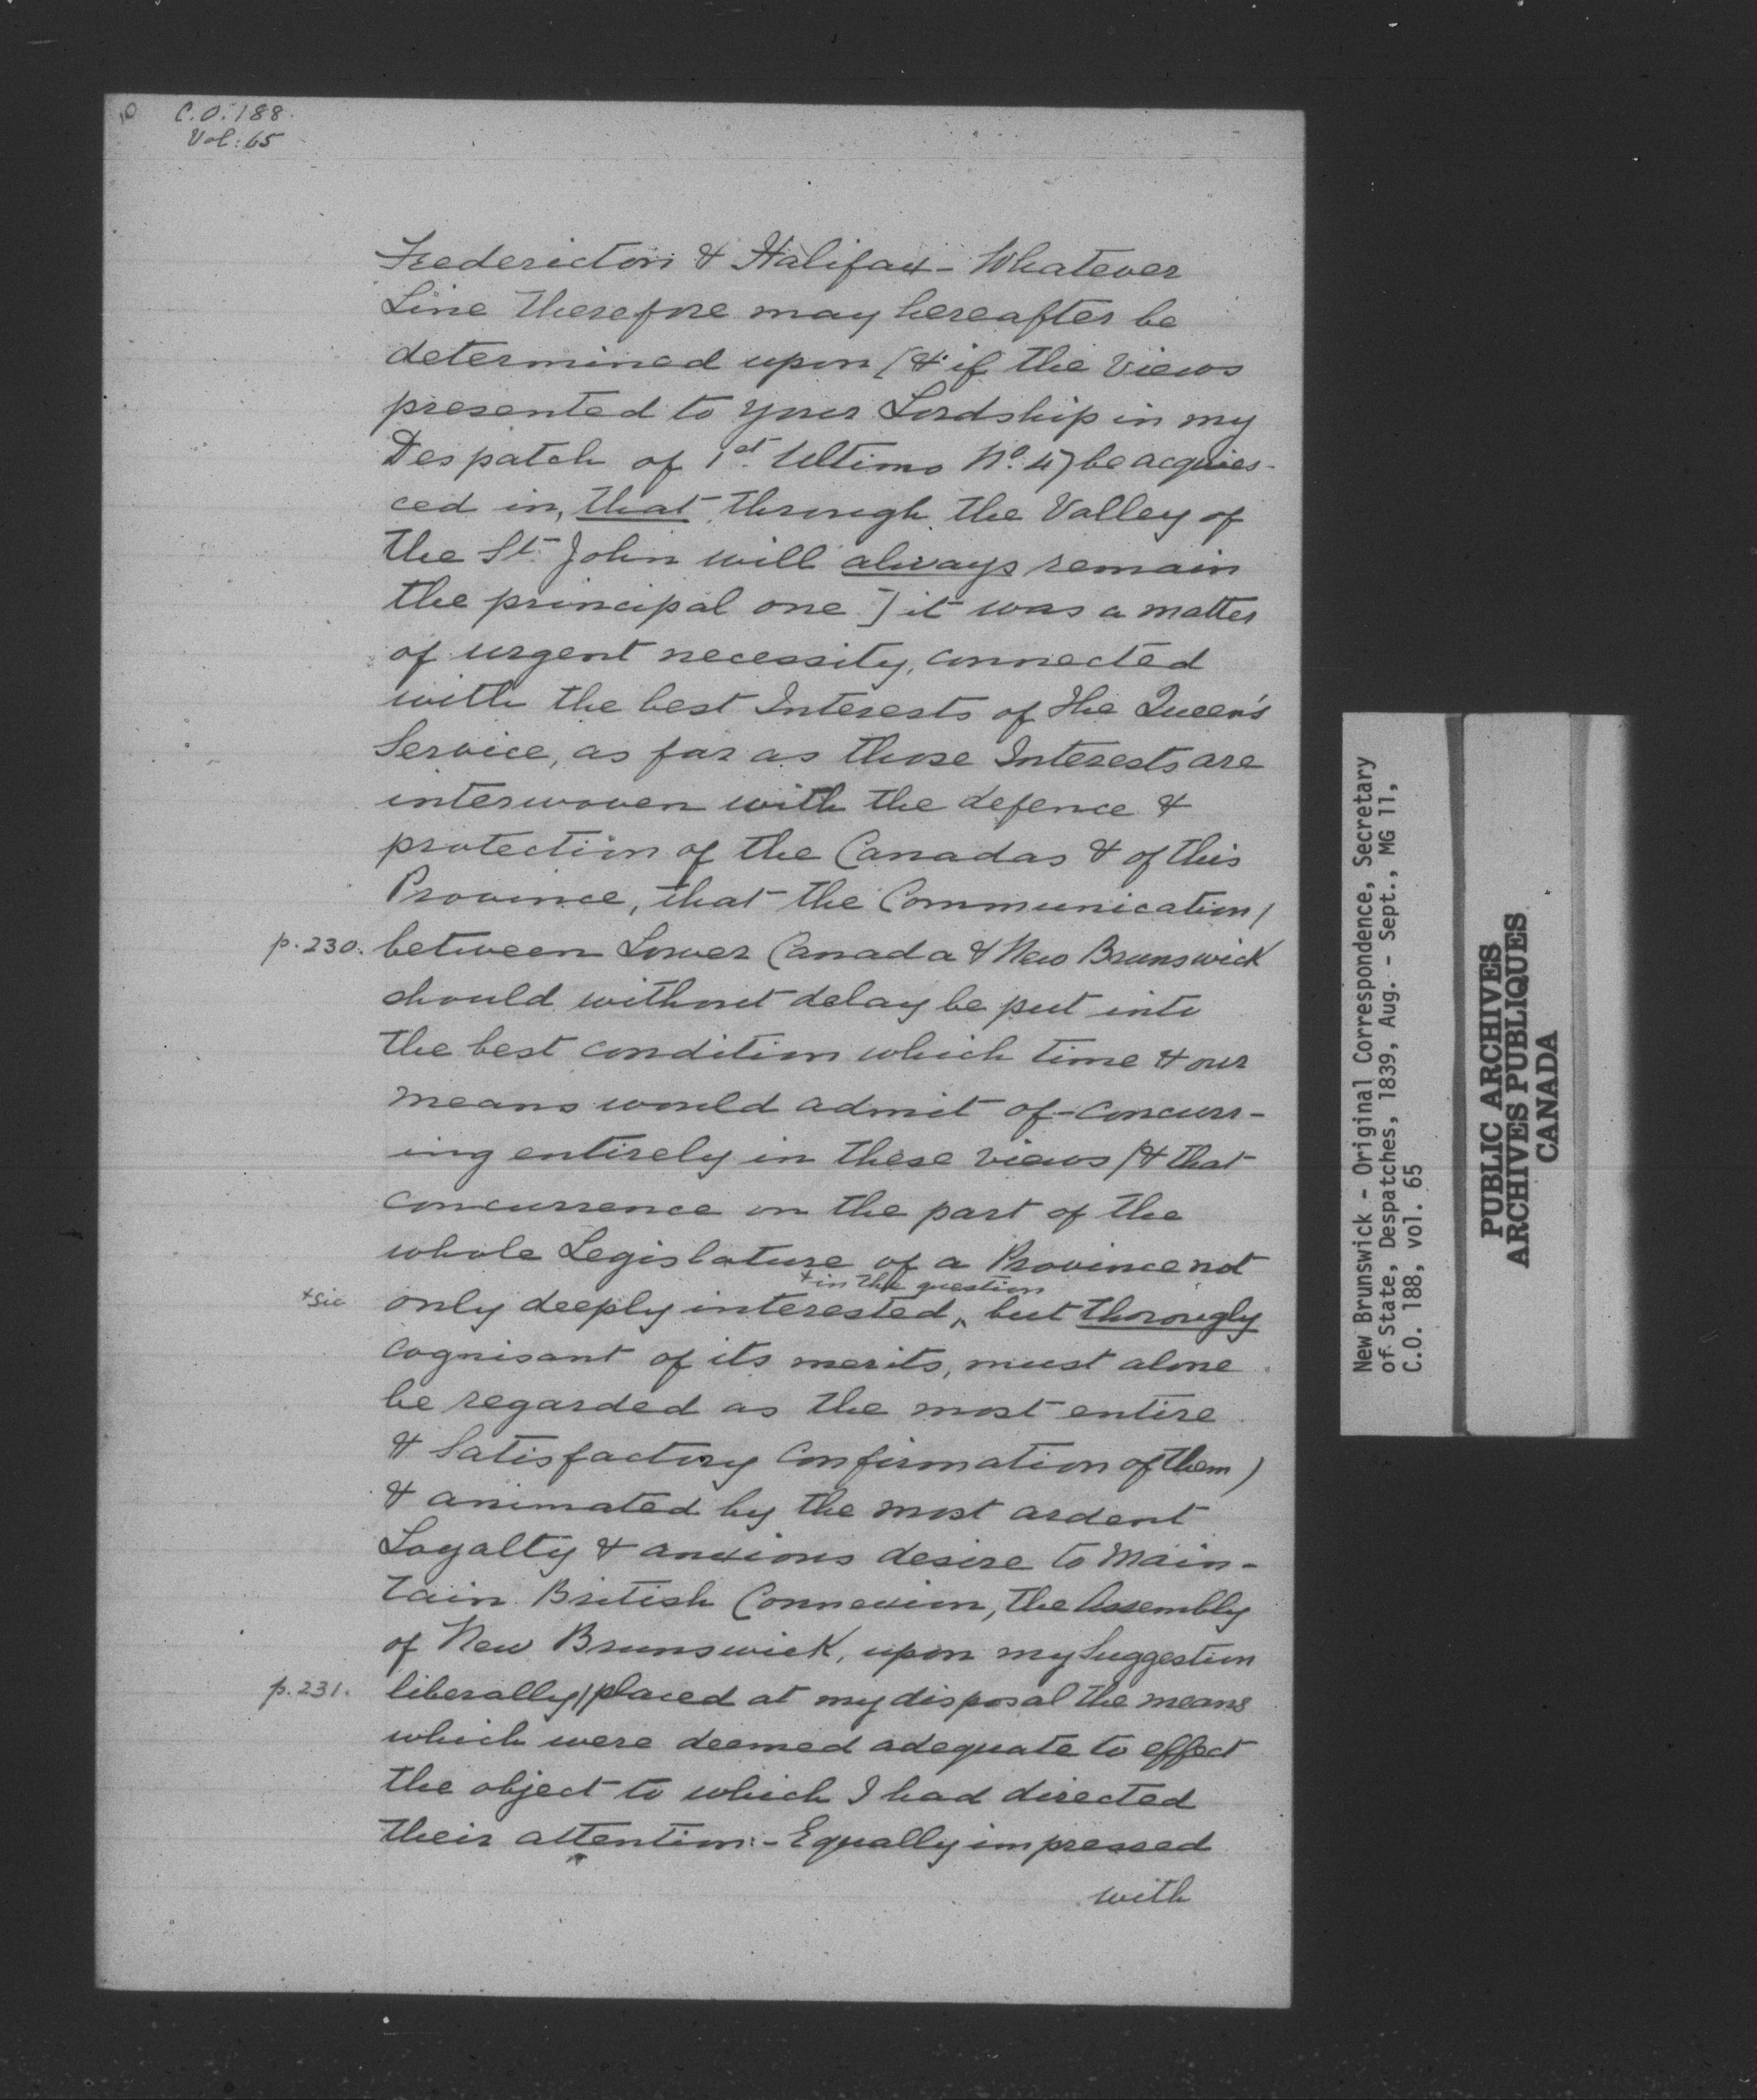 10 C.O. 188.
Vol: 65
Fredericton & Halifax - Whatever
Line therefore may hereafter be
determined upon [& if the views
presented to your Lordship in my
Despatch of 1st. Ultimo No. 47 be acquies-
ced in, that through the Valley of
the St. John will always remain
the principal one] it was a matter
of urgent necessity, connected
with the best Interests of the Queen's
Service, as far as those Interests are
interwoven with the defence &
protection of the Canadas & of this
Province, that the Communication/
p. 230. between Lower Canada & New Brunswick
should without delay be put into
the best condition which time & our
means would admit of - concurr-
ing entirely in these views (& that
concurrence on the part of the
whole Legislature of a Province not
+ in the question
+ sic only deeply interested, ^ but thorougly
cognisant of its merits, must alone
be regarded as the most entire
& Satisfactory Confirmation of them)
& animated by the most ardent
Loyalty & anxious desire to Main-
tain British Connexion, the Assembly
of New Brunswick, upon my Suggestion
p. 231. liberally/placed at my disposal the means
which were deemed adequate to effect
the object to which I had directed
their attention:- Equally impressed
with
New Brunswick - Original Correspondence, Secretary
of State, Despatches, 1839, Aug. - Sept., MG 11,
C.O. 188, vol. 65
PUBLIC ARCHIVES
ARCHIVES PUBLIQUES
CANADA